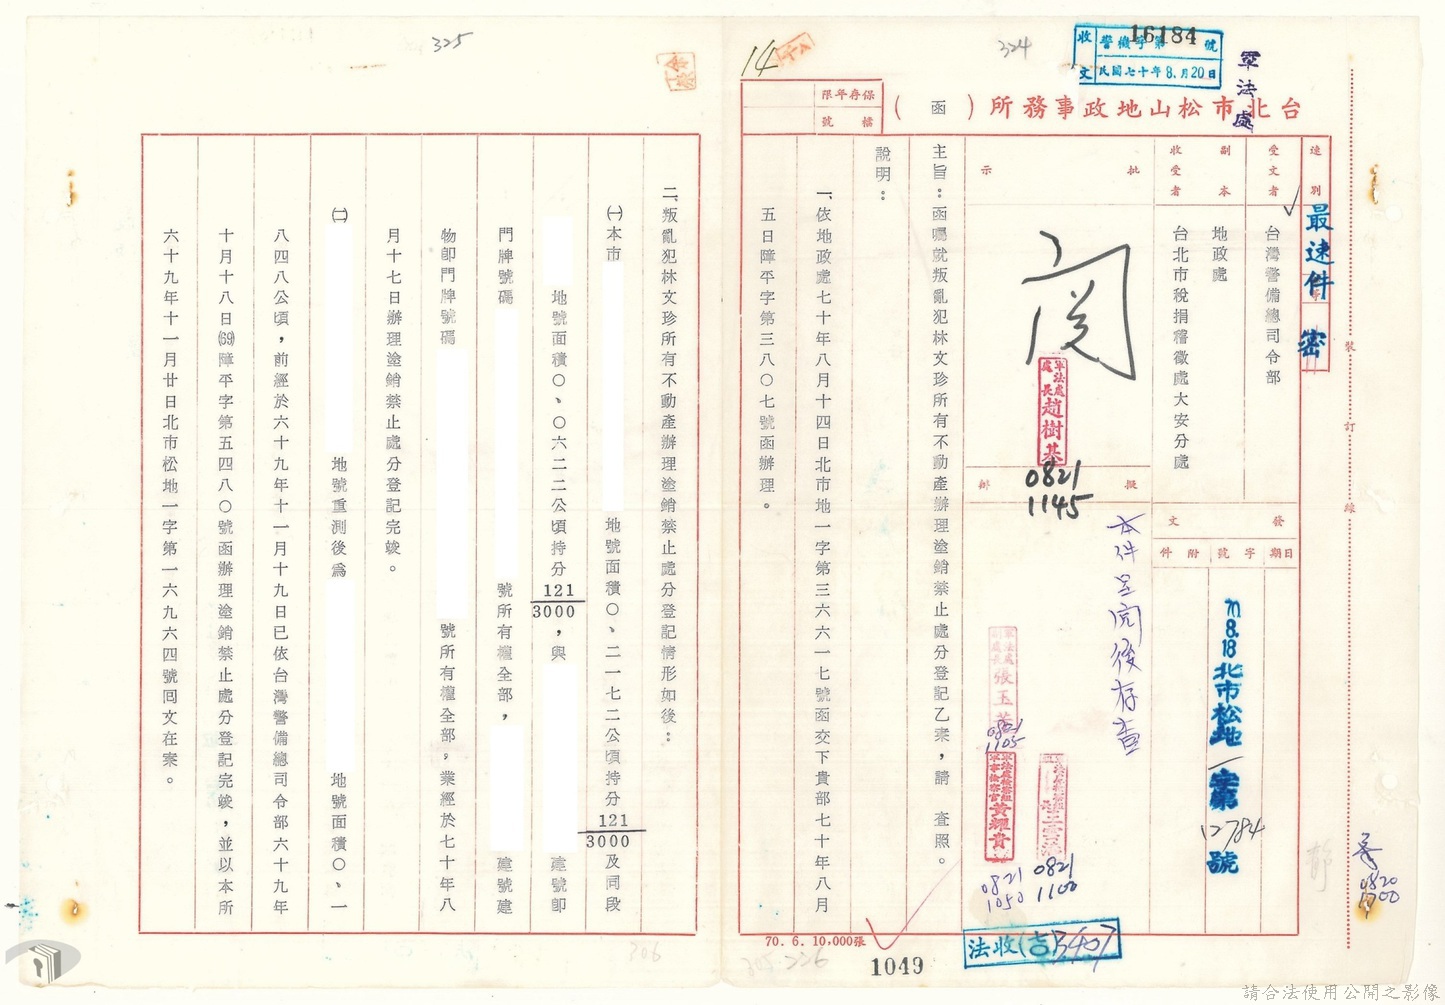 324
收文 警機字第16184號
民國七十年8.月20日
軍法處
台北市松山地政事務所（函）
14
保存年限
檔號
速別
最速件
密
受文者
台灣警備總司令部
副本收受者
地政處
台北市稅捐稽徵處大安分處
發文
日期
字號
附件
70.8.18
北市松地一字第12784號
批示
閱
軍法處處長趙樹基
0821
1145
擬辦
本件呈閱後存查
0821
1105
軍法處檢察組軍事檢察官黃耀貴
0821
1050
0821
1100
法收(吉)3407
0820
1700
主旨：函囑就叛亂犯林文珍所有不動產辦理塗銷禁止處分登記乙案，請　查照。
說明：
一、依地政處七十年八月十四日北市地一字第三六六一七號函交下貴部七十年八月
五日障平字第三八○七號函辦理。
裝
訂
線
70.6.10,000張
1049
325
二、叛亂犯林文珍所有不動產辦理塗銷禁止處分登記情形如後：
㈠本市　地號面積○、二一七二公頃持分121/3000及同段
地號面積○、○六二二公頃持分121/3000，與　建號即
門牌號碼　號所有權全部，　建號建
物即門牌號碼　號所有權全部。業經於七十年八
月十七日辦理塗銷禁止處分登記完竣。
㈡　地號重測後為　地號面積○、一
八四八公頃，前經於六十九年十一月十九日已依台灣警備總司令部六十九年
十月十八日(69)障平字第五四八○號函辦理塗銷禁止處分登記完竣，並以本所
六十九年十一月廿日北市松地一字第一六九六四號囘文在案。
306
請合法使用公開之影像